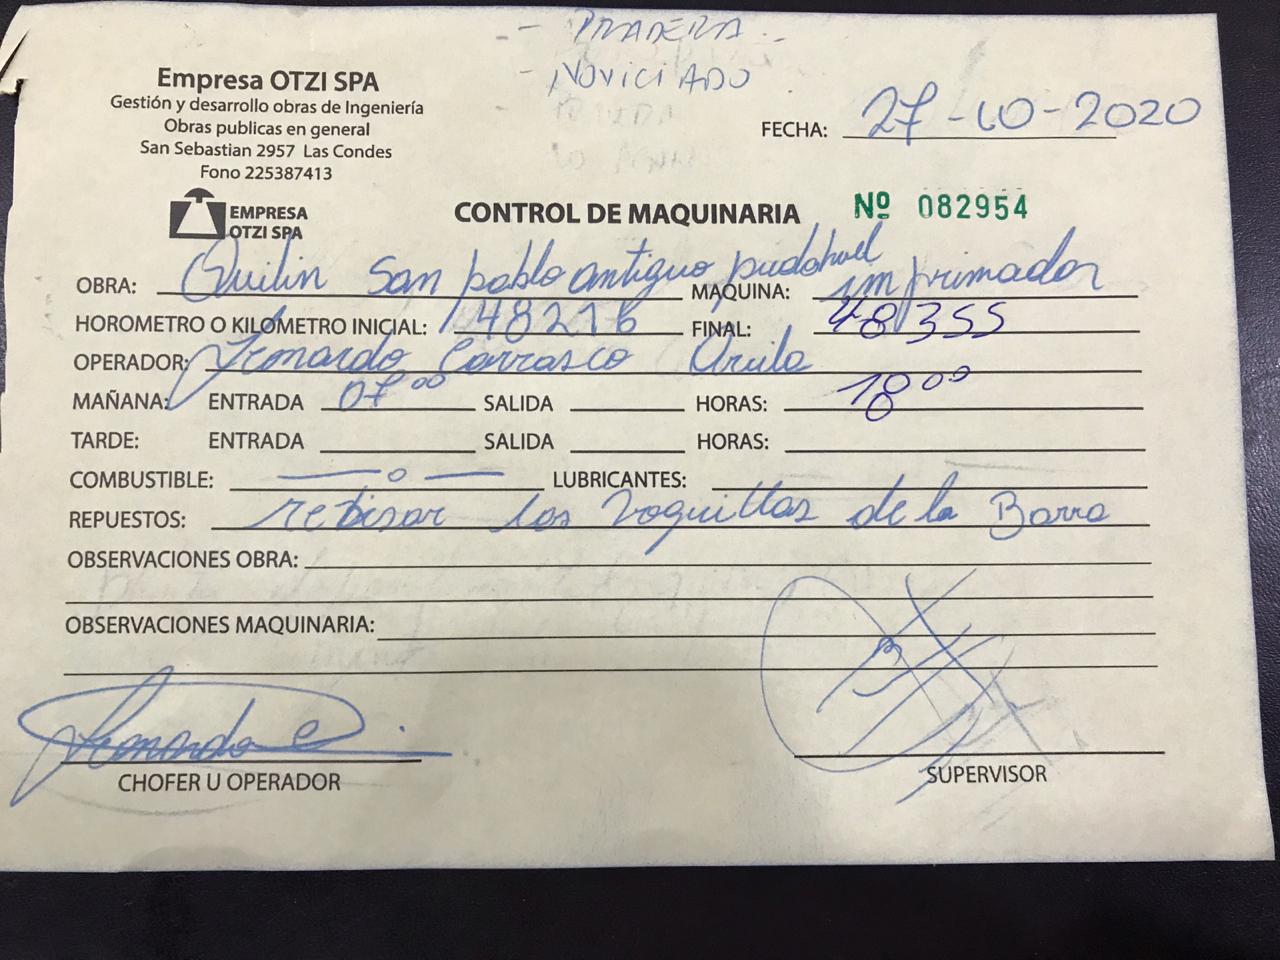 - PRADERA
- NOVICIADO
Empresa OTZI SPA
Gestión y desarrollo obras de Ingeniería
Obras publicas en general
San Sebastian 2957 Las Condes
Fono 225387413
FECHA: 27-10-2020
EMPRESA
OTZI SPA
CONTROL DE MAQUINARIA Nº 082954
OBRA: Quilin San pablo antiguo pudahuel MAQUINA: imprimador
HOROMETRO O KILOMETRO INICIAL: 148216 FINAL: 48355
OPERADOR: Carrasco
MAÑANA: ENTRADA 07 00 SALIDA HORAS: 18 00
TARDE: ENTRADA SALIDA HORAS:
COMBUSTIBLE: — o — LUBRICANTES:
REPUESTOS: rebisar los boquillas de la Barra
OBSERVACIONES OBRA:
OBSERVACIONES MAQUINARIA:
CHOFER U OPERADOR
SUPERVISOR